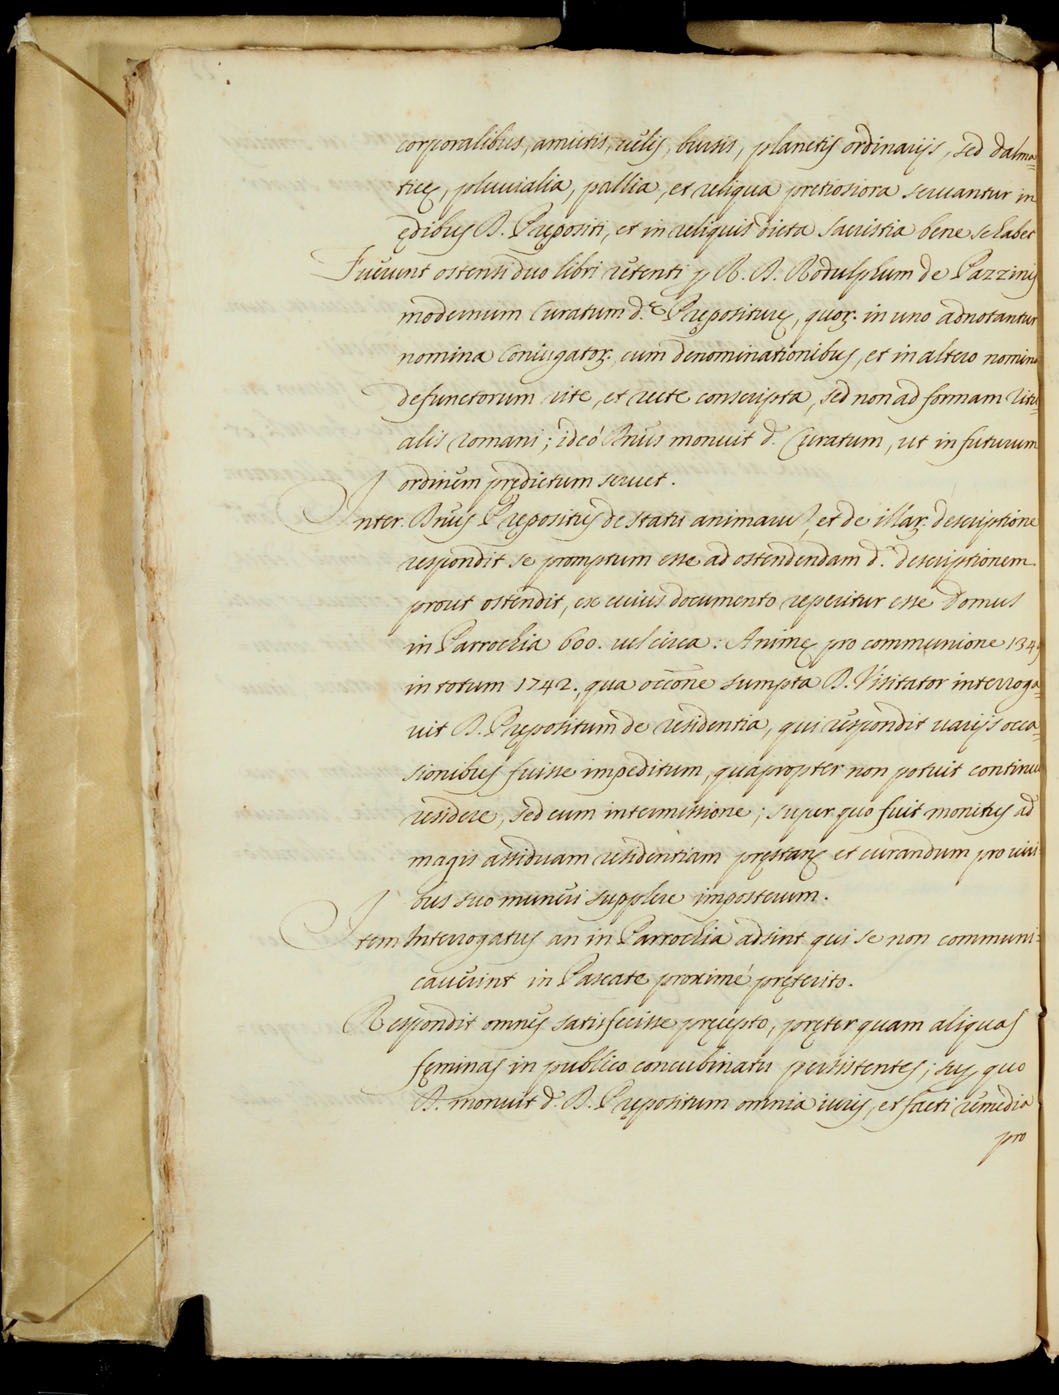 corporalibus, amictis, velis, bursis, planetis ordinarijs, sed dalma-
ticę, pluuialia, pallia, et reliqua pretiosiora seruantur in
ędibus D. Prępositi, et in reliquis dicta sacristia bene se habet
Fuerunt ostensi duo libri retenti p R. D. Rodulphum de Pazzinis
modernum Curatum d.ę Prępositurę, quoꝝ. in uno adnotantur
nomina Coniugatoꝝ. cum denominationibus, et in altero nomina
defunctorum rite, et recte conscripta, sed non ad formam Ritu-
alis romani; ideó Dnus monuit d. Curatum, ut in futurum
ordinem prędictum seruet.
Inter. Dnus Prępositus de statu animarum, et de illaꝝ. descriptione
respondit se promptum esse ad ostendendam d. descriptionem
prout ostendit, ex cuius documento reperitur esse Domus
in Parrochia 600. vel circa: Animę pro communione 1349
in totum 1742., qua occõne sumpta D. Visitator interroga-
uit D. Prępositum de residentia, qui respondit varijs occa-
sionibus fuisse impeditum, quapropter non potuit continuè
residere, sed cum intermissione; super quo fuit monitus ad
magis assiduam residentiam pręstanᵭ et curandum pro viri-
bus suo muneri supplere imposterum.
Item Interrogatus an in Parrochia adsint qui se non communi-
cauerint in Pascate proximé pręterito.
Respondit omnes satisfecisse pręcepto, pręterquam aliquas
fęminas in publico concubinatu persistentes; sup quo
D. monuit d. D. Prępositum omnia iuris, et facti remedia
pro